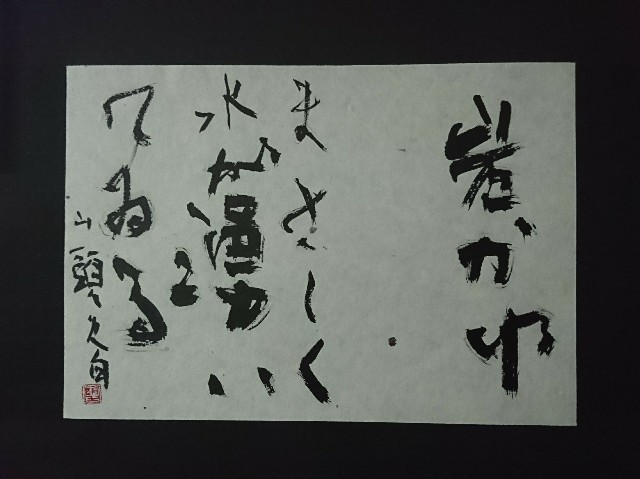 岩かげ
まさしく
水が湧い
てゐる
山頭火句